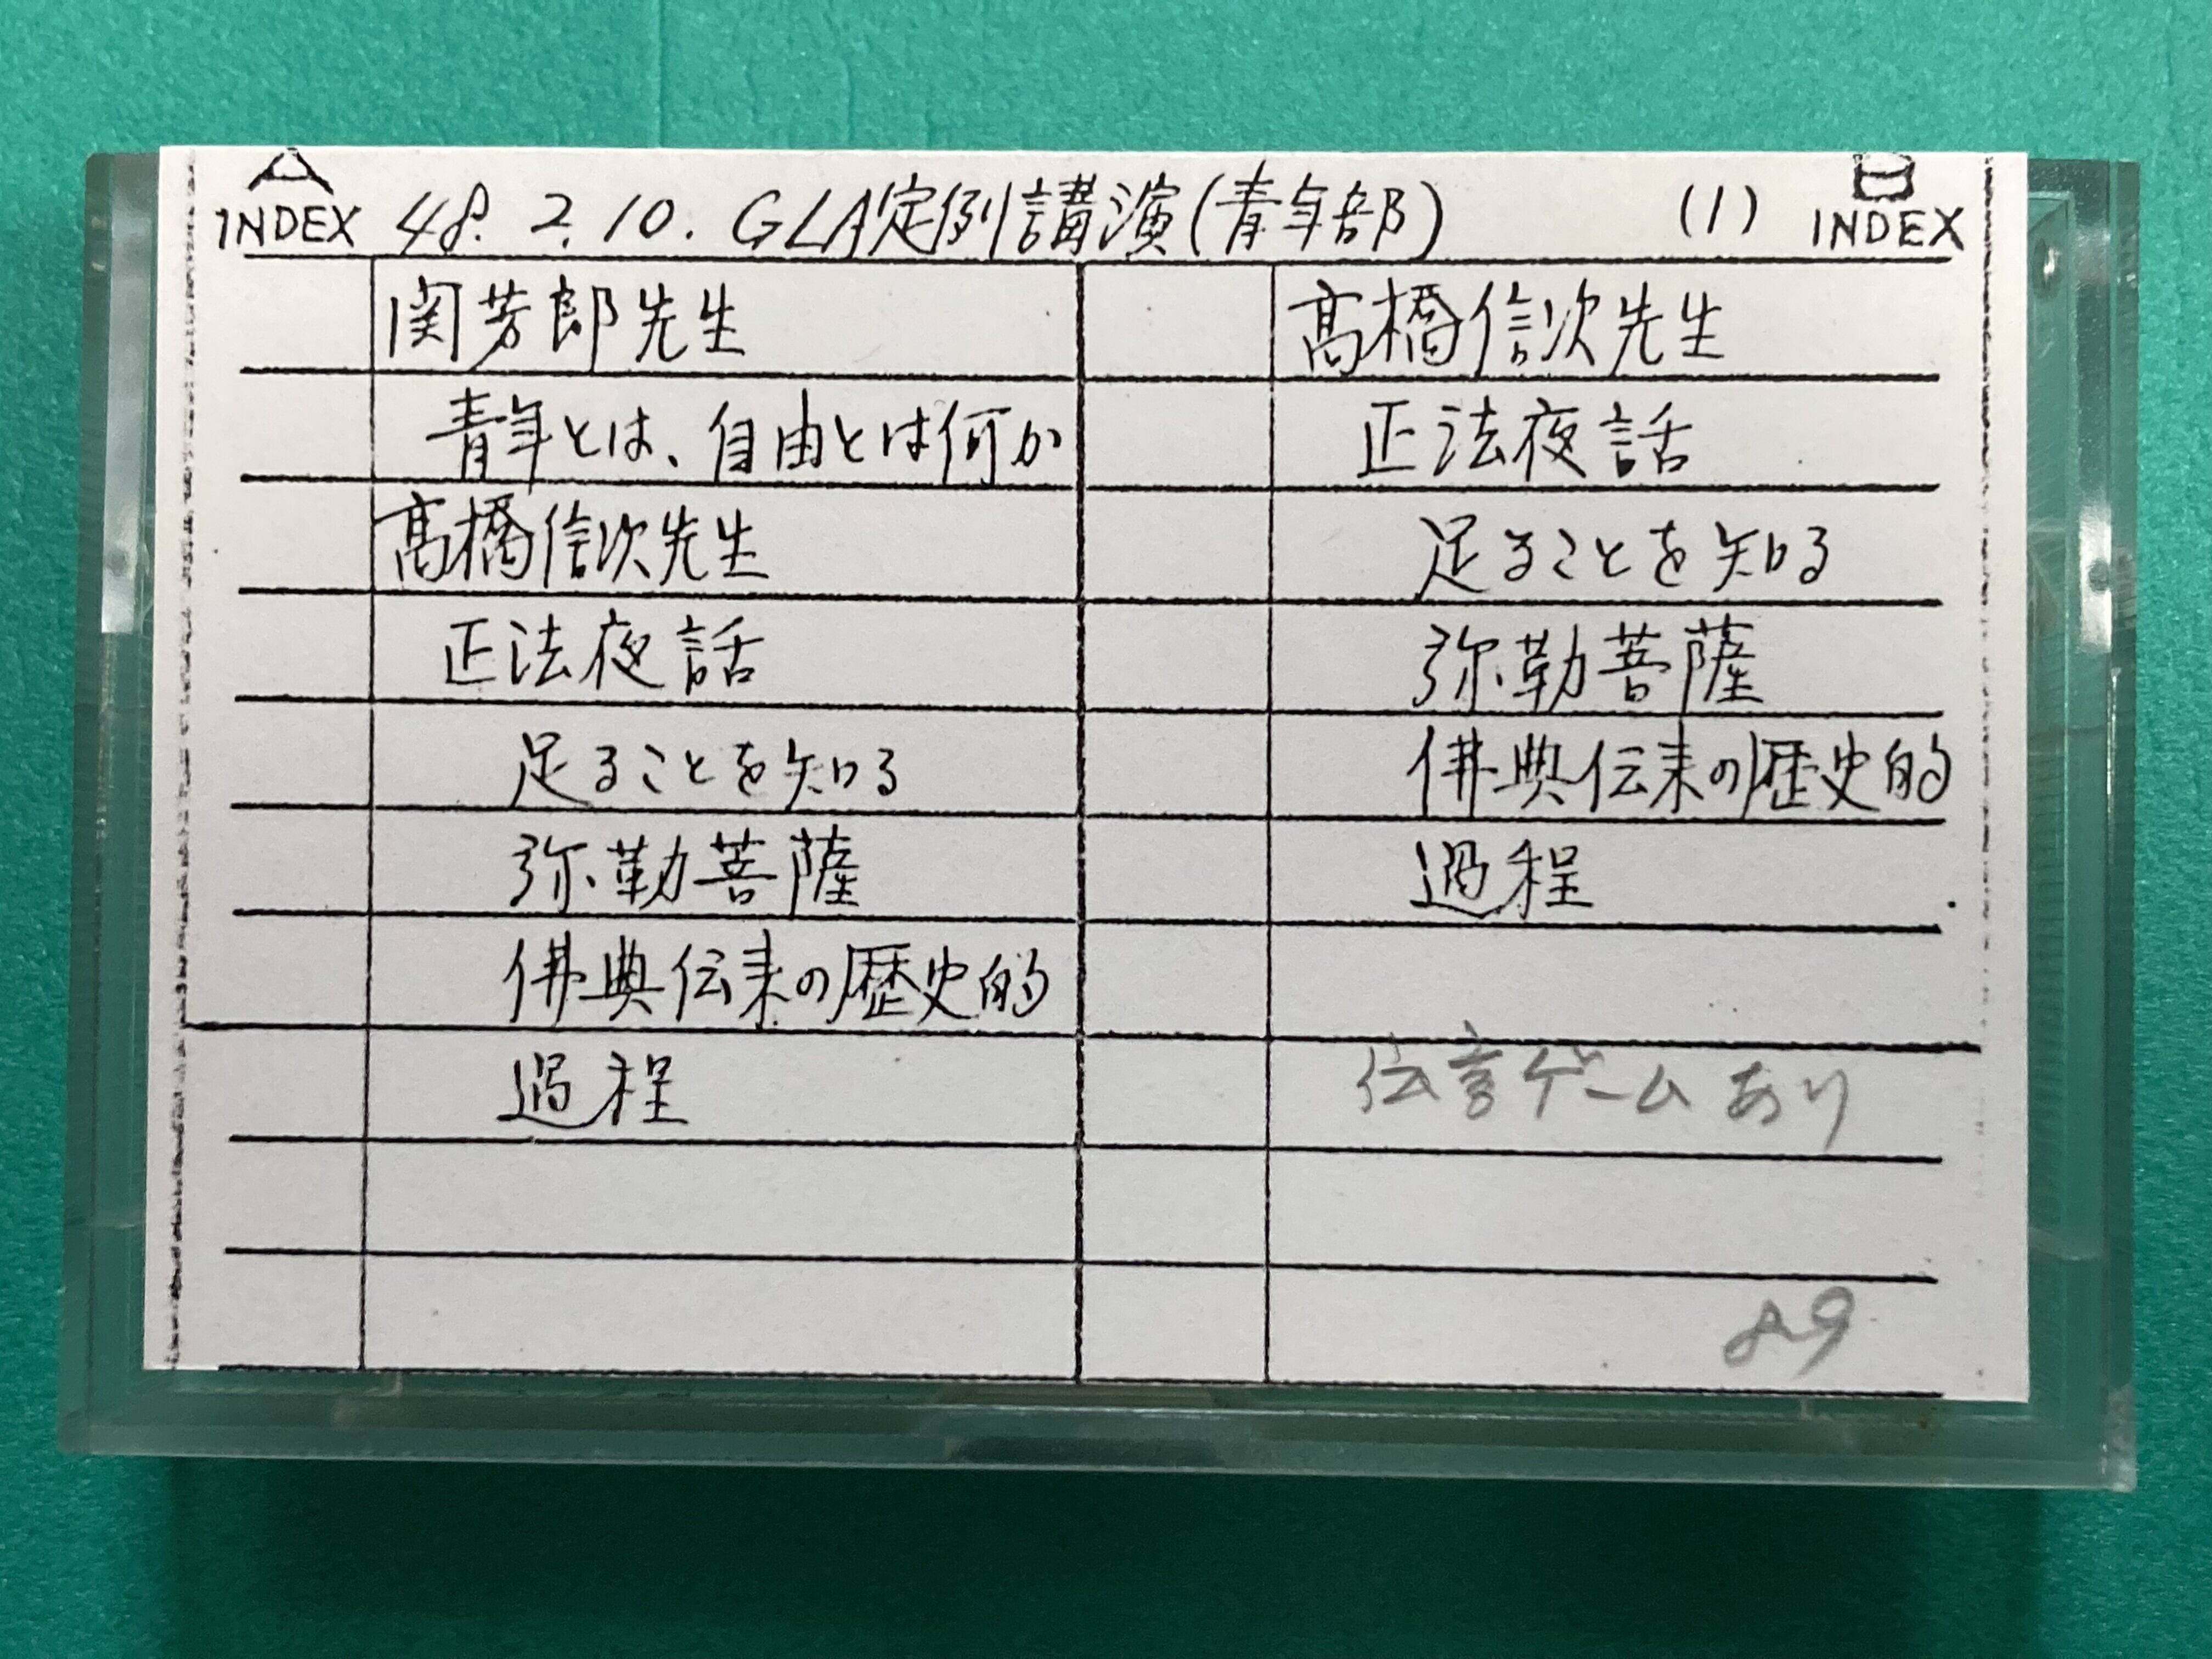 A
INDEX 48.2.10.GLA定例講演(青年部) (1)
B
INDEX
関芳郎先生
青年とは、自由とは何か
髙橋信次先生
正法夜話
足ることを知る
弥勒菩薩
佛典伝来の歴史的
過程
髙橋信次先生
正法夜話
足ることを知る
弥勒菩薩
佛典伝来の歴史的
過程
伝言ゲームあり